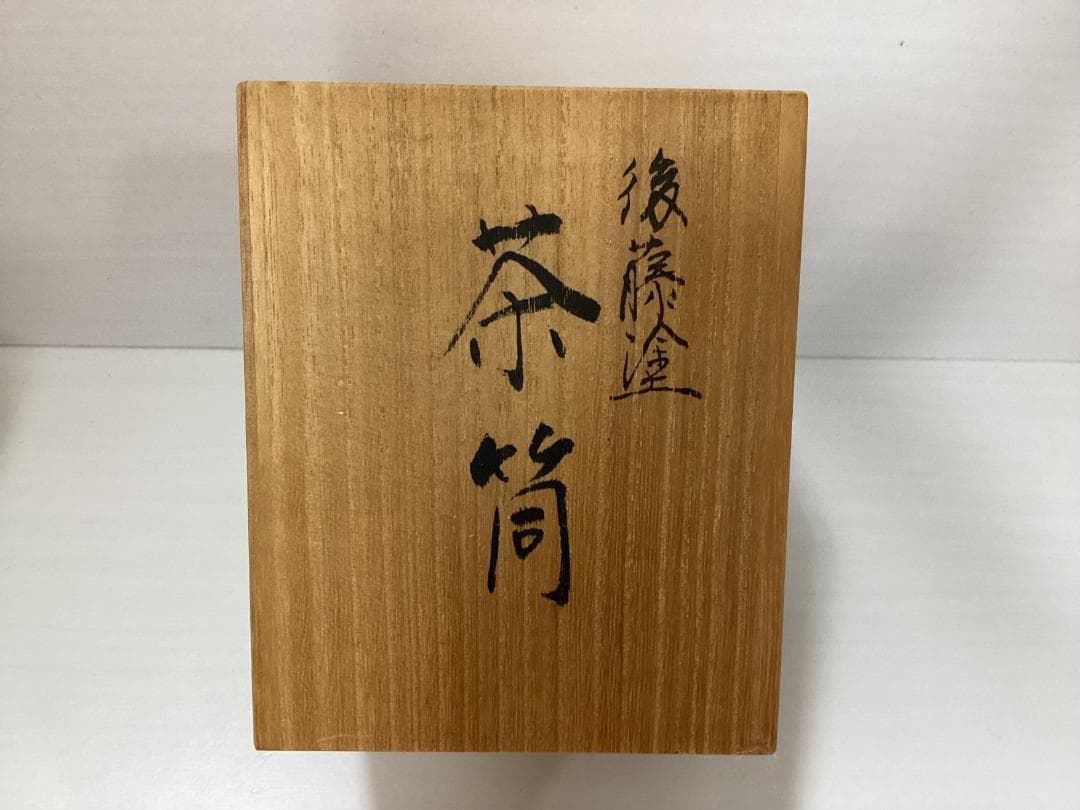 後藤塗
茶筒